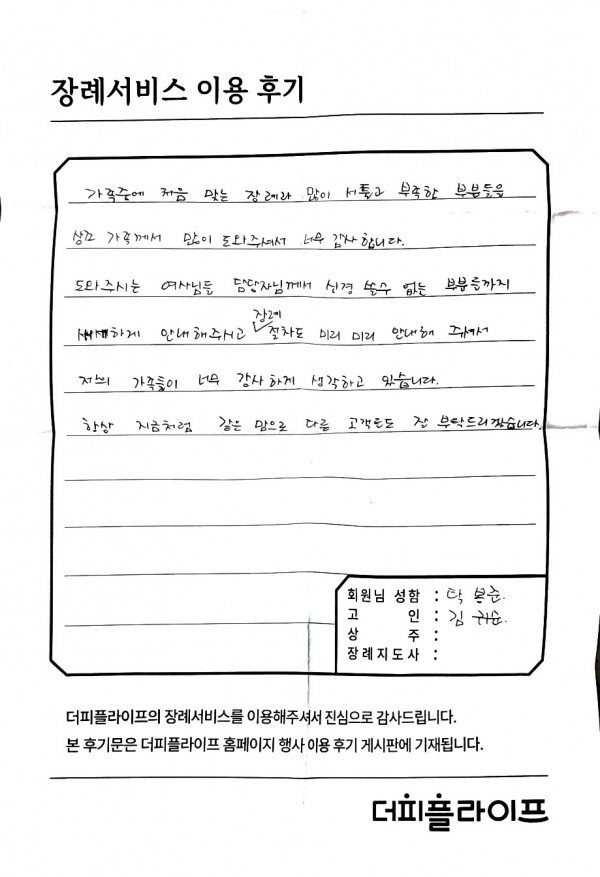 장례서비스 이용 후기
가족중에 처음 맞는 장례라 많이 서툴고 부족한 부분들을
상조 가족께서 많이 도와주셔서 너무 감사합니다.
도와주시는 여사님들 담당자님께서 신경 쓸수 없는 부분들까지
세세하게 안내해주시고 장례 절차도 미리 미리 안내해 주셔서
저희 가족들이 너무 감사하게 생각하고 있습니다.
항상 지금처럼 같은 맘으로 다른 고객분도 잘 부탁드리겠습니다.
회원님 성함 : 탁 봉준.
고 인 : 김 귀순.
상 주 :
장례지도사 :
더피플라이프의 장례서비스를 이용해주셔서 진심으로 감사드립니다.
본 후기문은 더피플라이프 홈페이지 행사 이용 후기 게시판에 기재됩니다.
더피플라이프